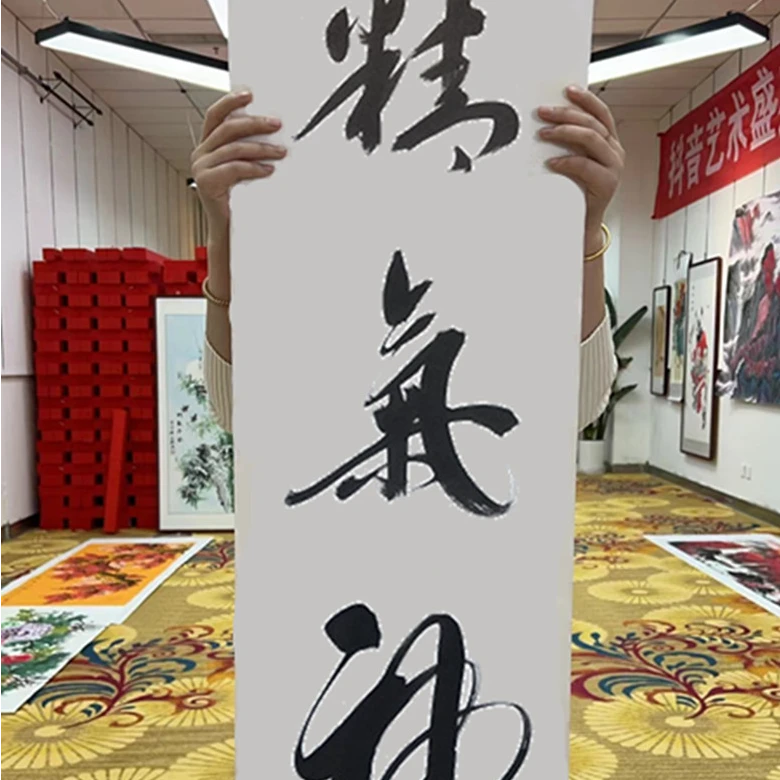 精
氣
神
抖音艺术盛